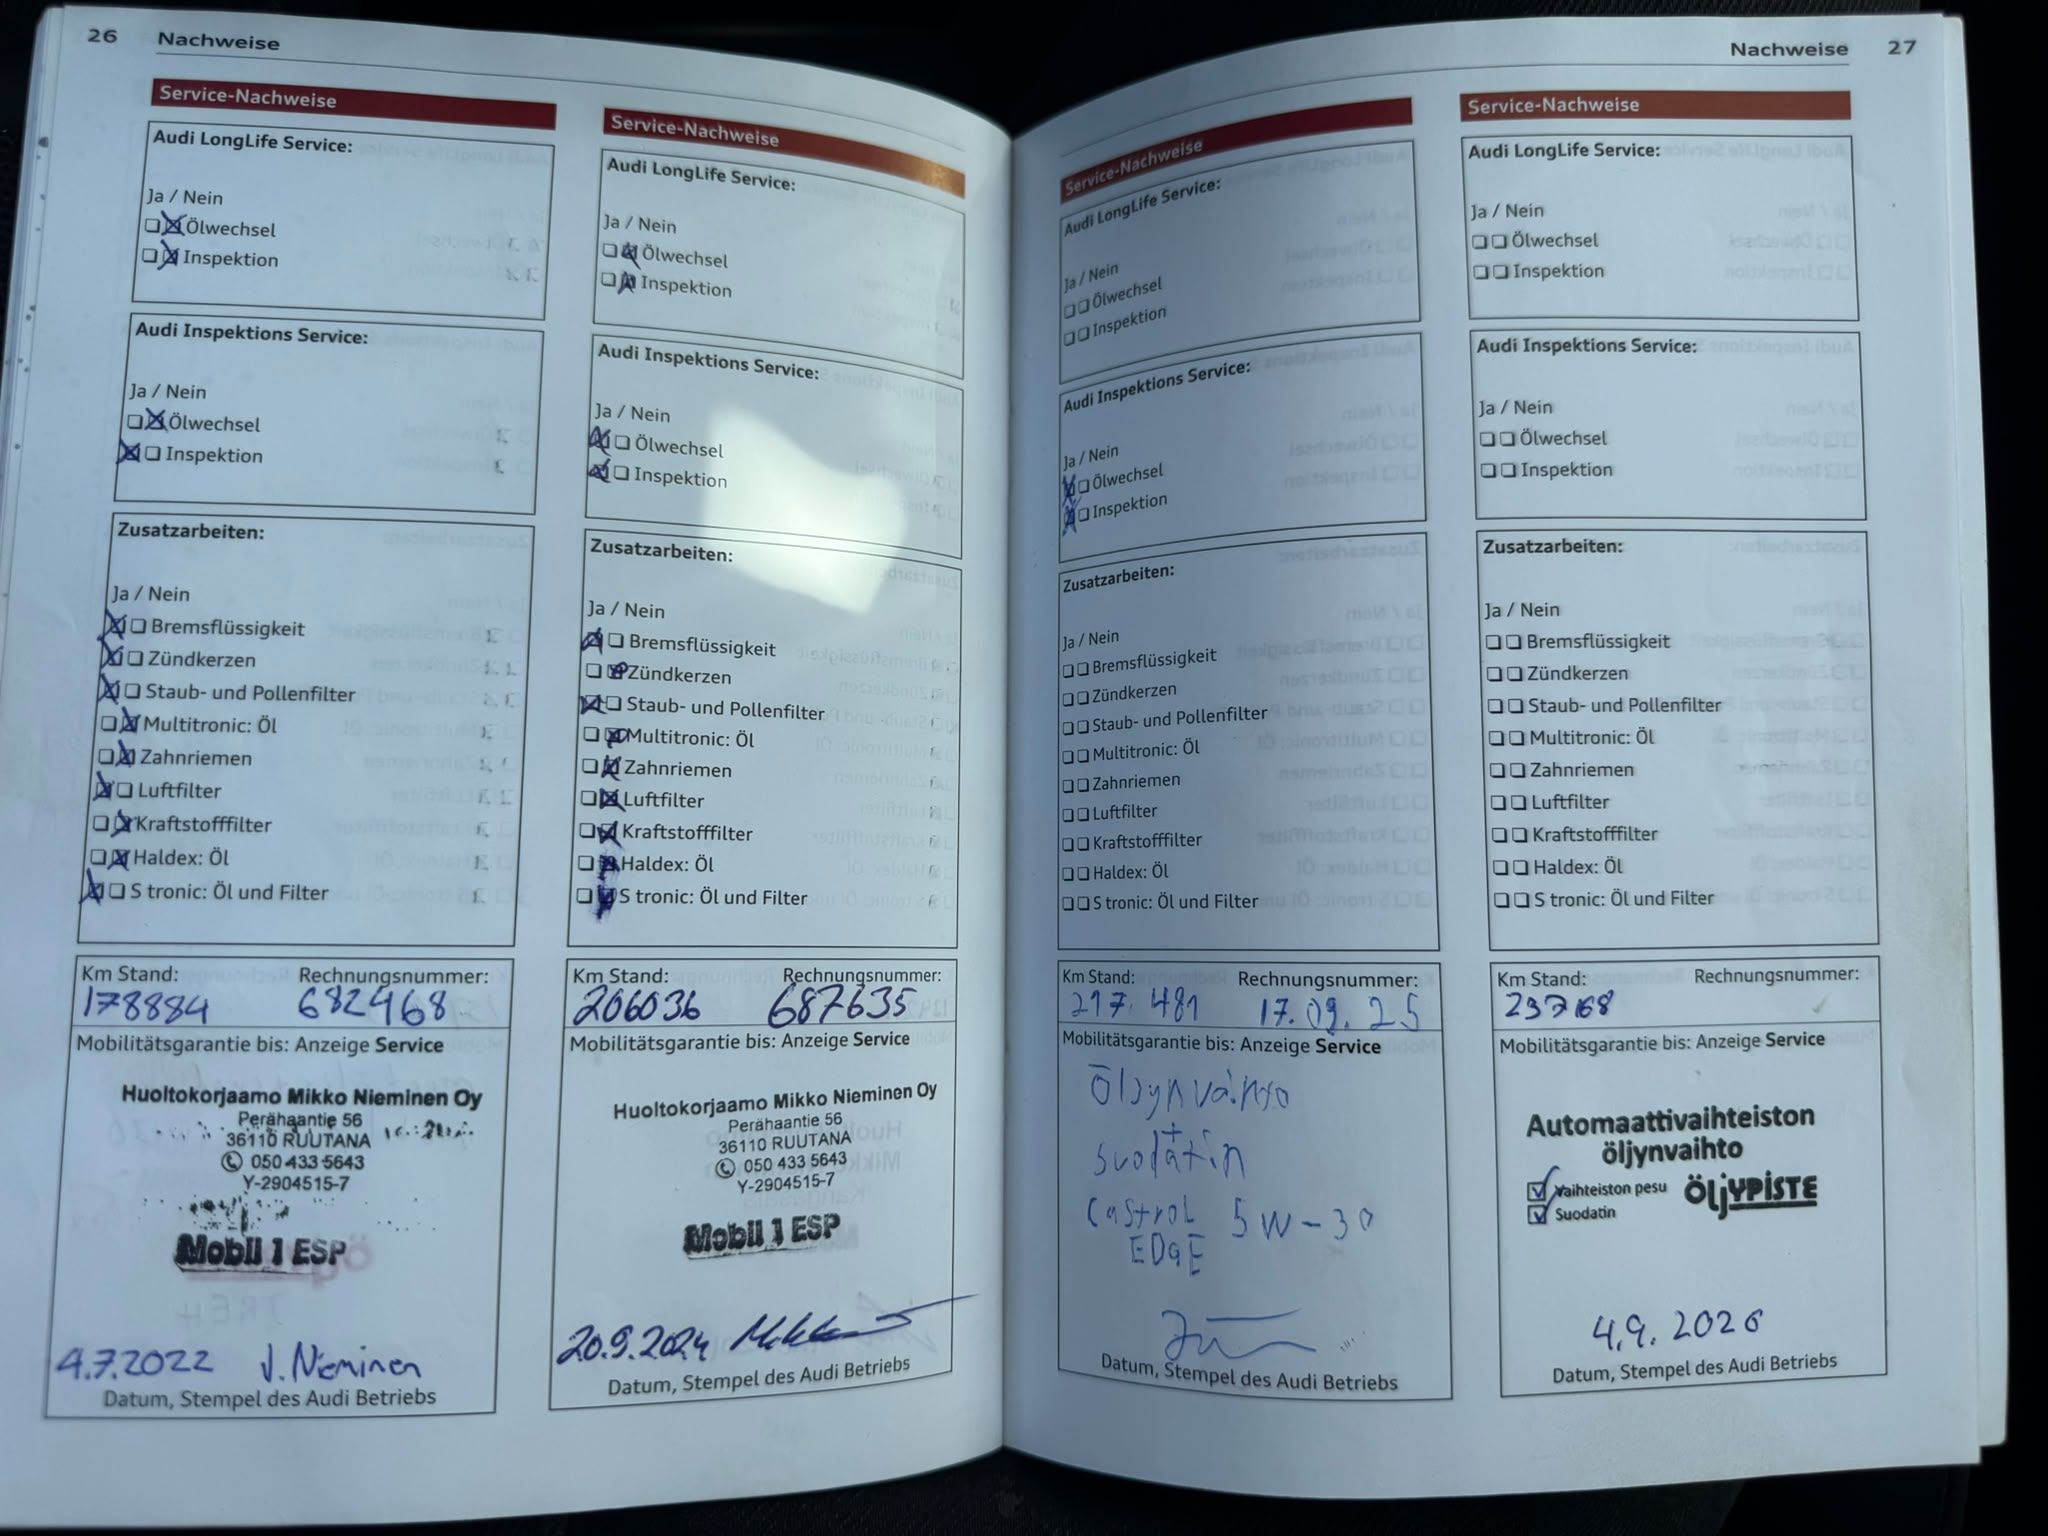 26 Nachweise
Service-Nachweise
Audi LongLife Service:
Ja / Nein
Ölwechsel
Inspektion
Audi Inspektions Service:
Ja / Nein
Ölwechsel
Inspektion
Zusatzarbeiten:
Ja / Nein
Bremsflüssigkeit
Zündkerzen
Staub- und Pollenfilter
Multitronic: Öl
Zahnriemen
Luftfilter
Kraftstofffilter
Haldex: Öl
S tronic: Öl und Filter
Km Stand: Rechnungsnummer:
178884 682468
Mobilitätsgarantie bis: Anzeige Service
Huoltokorjaamo Mikko Nieminen Oy
Perähaantie 56
36110 RUUTANA
050 433 5643
Y-2904515-7
Mobil 1 ESP
4.7.2022 J. Nieminen
Datum, Stempel des Audi Betriebs
Service-Nachweise
Audi LongLife Service:
Ja / Nein
Ölwechsel
Inspektion
Audi Inspektions Service:
Ja / Nein
Ölwechsel
Inspektion
Zusatzarbeiten:
Ja / Nein
Bremsflüssigkeit
Zündkerzen
Staub- und Pollenfilter
Multitronic: Öl
Zahnriemen
Luftfilter
Kraftstofffilter
Haldex: Öl
S tronic: Öl und Filter
Km Stand: Rechnungsnummer:
206036 687635
Mobilitätsgarantie bis: Anzeige Service
Huoltokorjaamo Mikko Nieminen Oy
Perähaantie 56
36110 RUUTANA
050 433 5643
Y-2904515-7
Mobil 1 ESP
20.9.2024
Datum, Stempel des Audi Betriebs
Nachweise 27
Service-Nachweise
Audi LongLife Service:
Ja / Nein
Ölwechsel
Inspektion
Audi Inspektions Service:
Ja / Nein
Ölwechsel
Inspektion
Zusatzarbeiten:
Ja / Nein
Bremsflüssigkeit
Zündkerzen
Staub- und Pollenfilter
Multitronic: Öl
Zahnriemen
Luftfilter
Kraftstofffilter
Haldex: Öl
S tronic: Öl und Filter
Km Stand: Rechnungsnummer:
217.481 17.09.25
Mobilitätsgarantie bis: Anzeige Service
Öljynvaihto
+
suodatin
Castrol 5W-30
EDGE
Datum, Stempel des Audi Betriebs
Service-Nachweise
Audi LongLife Service:
Ja / Nein
Ölwechsel
Inspektion
Audi Inspektions Service:
Ja / Nein
Ölwechsel
Inspektion
Zusatzarbeiten:
Ja / Nein
Bremsflüssigkeit
Zündkerzen
Staub- und Pollenfilter
Multitronic: Öl
Zahnriemen
Luftfilter
Kraftstofffilter
Haldex: Öl
S tronic: Öl und Filter
Km Stand: Rechnungsnummer:
237168
Mobilitätsgarantie bis: Anzeige Service
Automaattivaihteiston
öljynvaihto
Vaihteiston pesu ÖLJYPISTE
Suodatin
4.9.2026
Datum, Stempel des Audi Betriebs